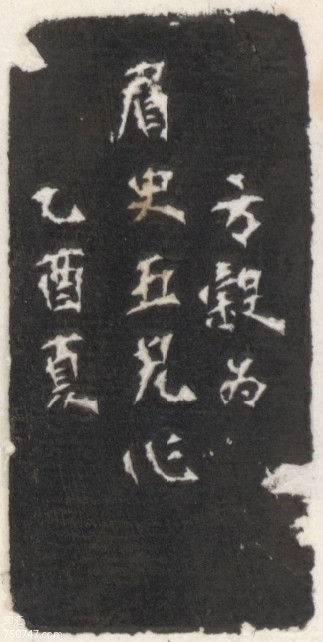 方穀为
眉史五兄作
乙酉夏
790747.com